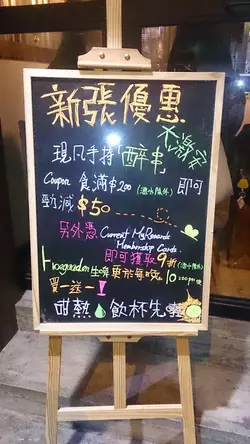 新張優惠
大激安
現凡手持「醉串」
Coupon 食滿$200 (酒水除外) 即可
勁減 $50
另外憑 Current MyRewards
Membership Cards
即可獲取 9折 (酒水除外)
Hoegaarden 生啤更於每晚 10:00pm 後
買一送一!
甜熱 飲杯先